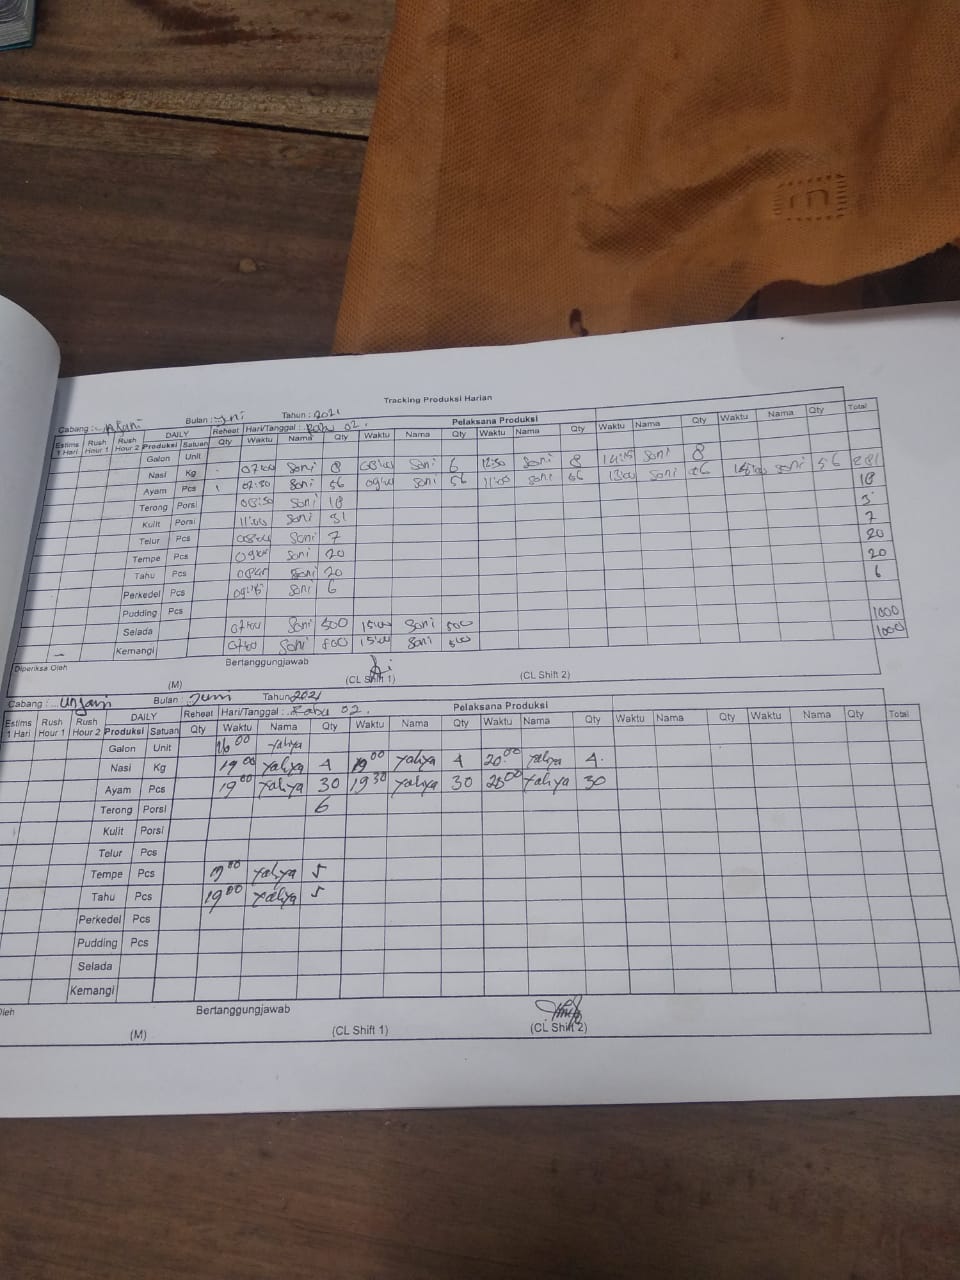 Tracking Produksi Harian
Cabang : Bulan : Juni Tahun : 2021 Pelaksana Produksi
Estims 1 Hari Rush Hour 1 Rush Hour 2 DAILY Reheat Hari/Tanggal : Rabu 02.
Produksi Satuan Qty Waktu Nama Qty Waktu Nama Qty Waktu Nama Qty Waktu Nama Qty Waktu Nama Qty Total
Galon Unit
Nasi Kg 07:00 Soni 8 Soni 6 12:30 Soni 8 14:15 Soni 8
Ayam Pcs 07:30 Soni 56 09:00 Soni 56 11:00 Soni 56 13:00 Soni 56 Soni 56 281
Terong Porsi 08:30 Soni 18 18
Kulit Porsi 11:00 Soni
Telur Pcs Soni 7 7
Tempe Pcs Soni 20 20
Tahu Pcs Soni 20 20
Perkedel Pcs 09:15 Soni 6 6
Pudding Pcs
Selada 07:00 Soni 500 15:00 Soni 500 1000
Kemangi Soni 500 15:00 Soni 500 1000
Diperiksa Oleh Bertanggungjawab
(M) (CL Shift 1) (CL Shift 2)
Cabang : Unjani Bulan : Juni Tahun 2021 Pelaksana Produksi
Estims 1 Hari Rush Hour 1 Rush Hour 2 DAILY Reheat Hari/Tanggal : Rabu 02.
Produksi Satuan Qty Waktu Nama Qty Waktu Nama Qty Waktu Nama Qty Waktu Nama Qty Waktu Nama Qty Total
Galon Unit 16 00 Yahya
Nasi Kg 19 00 Yahya 4 19 00 Yahya 4 20 00 Yahya 4.
Ayam Pcs 19 00 Yahya 30 19 30 Yahya 30 20 00 Yahya 30
Terong Porsi 6
Kulit Porsi
Telur Pcs
Tempe Pcs 19 00 Yahya 5
Tahu Pcs 19 00 Yahya 5
Perkedel Pcs
Pudding Pcs
Selada
Kemangi
Oleh Bertanggungjawab
(M) (CL Shift 1) (CL Shift 2)